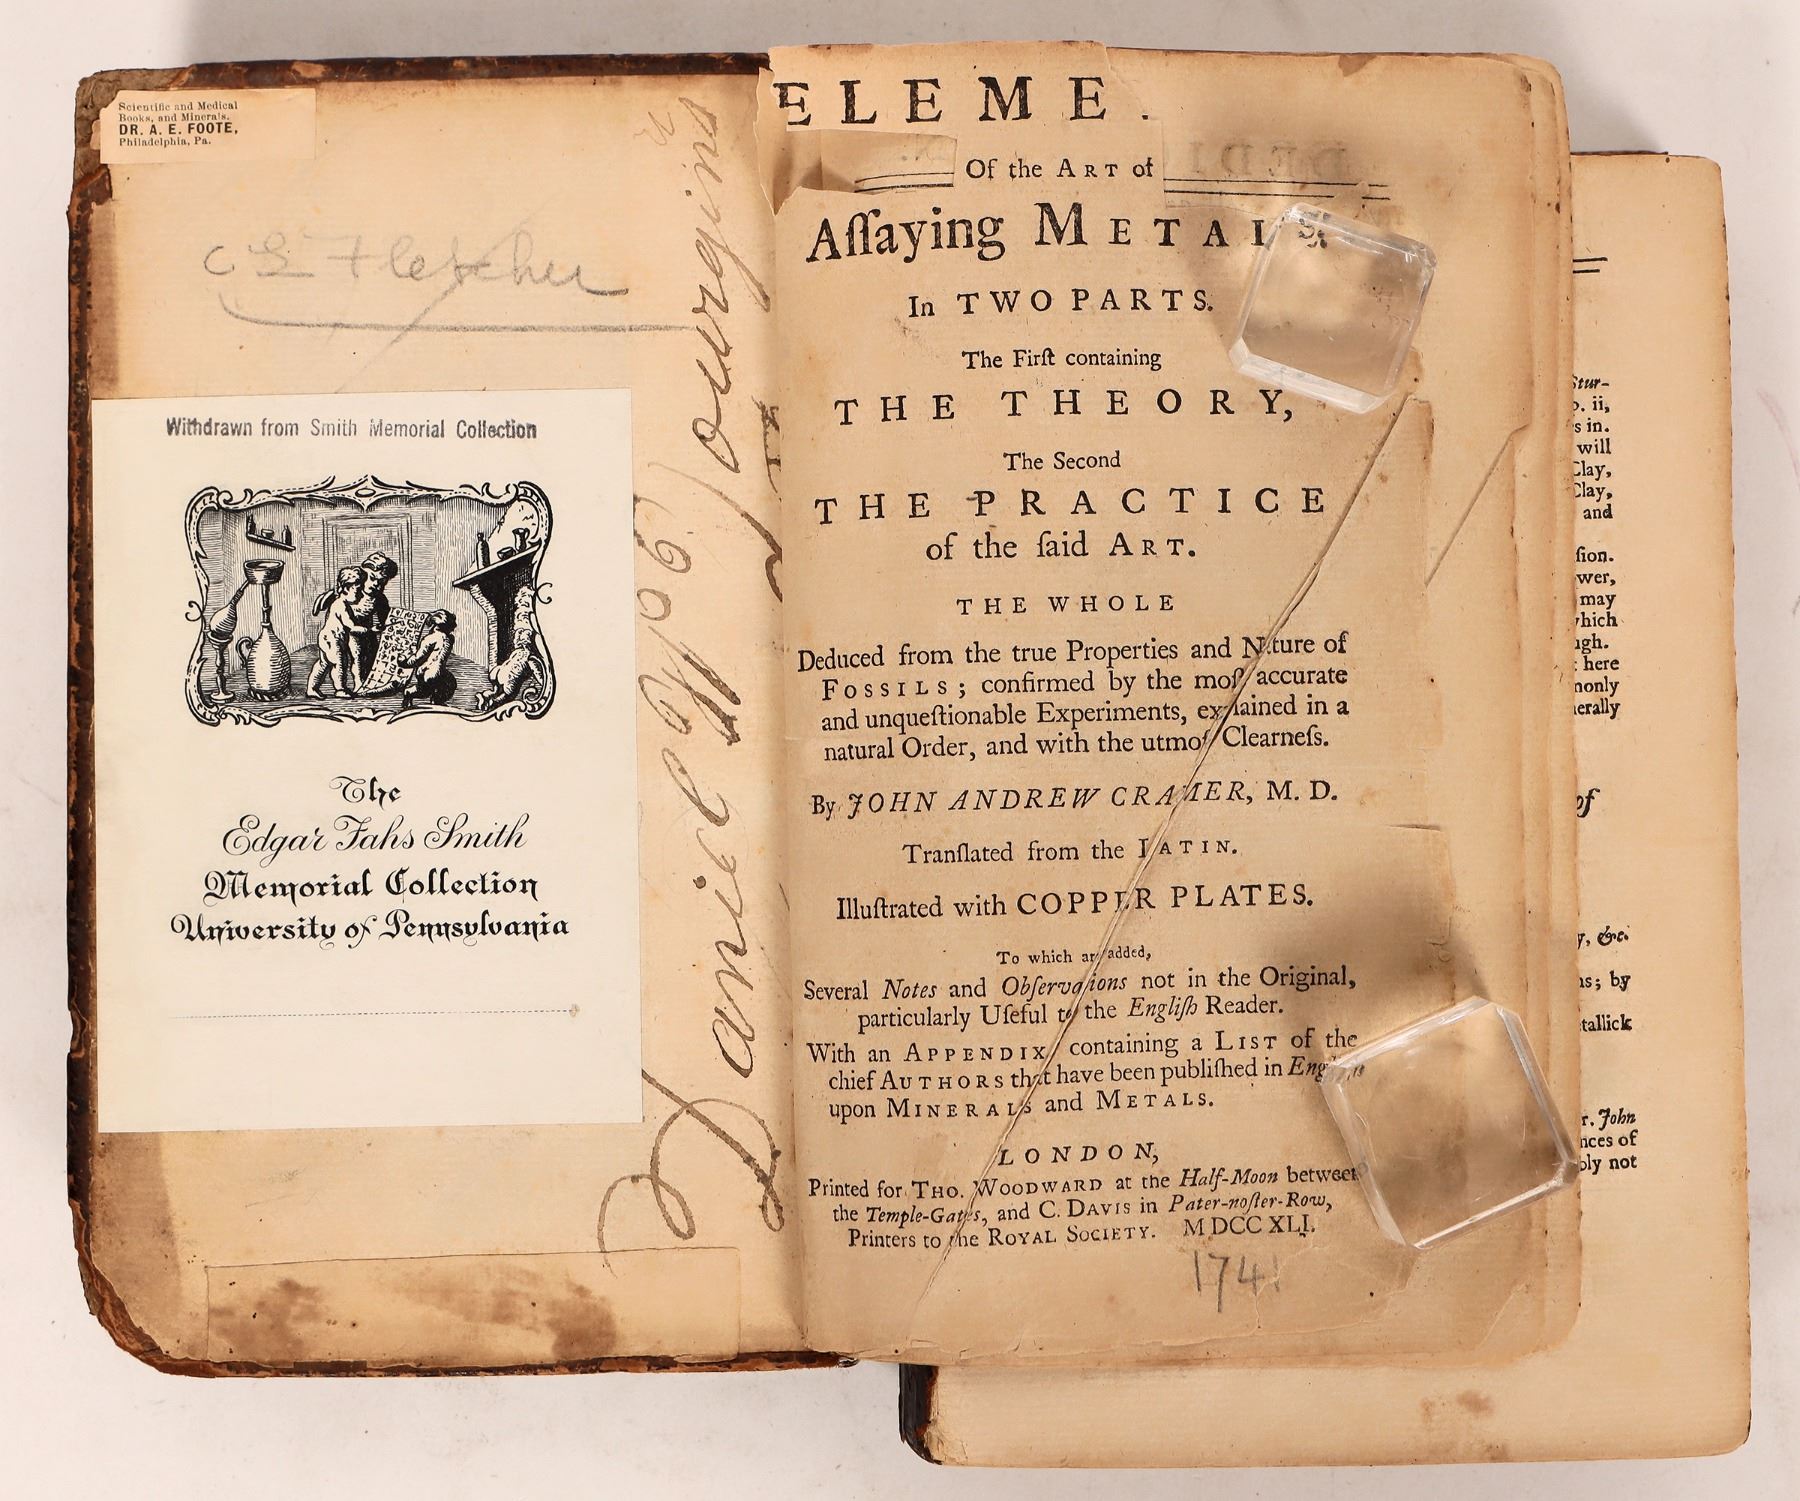 Scientific and Medical
Books, and Minerals.
DR. A. E. FOOTE,
Philadelphia, Pa.
C E Fletcher
Withdrawn from Smith Memorial Collection
The
Edgar Fahs Smith
Memorial Collection
University of Pennsylvania
Daniel
ELEME
Of the ART of
Aſſaying METALS.
In TWO PARTS.
The Firſt containing
THE THEORY,
The Second
THE PRACTICE
of the ſaid ART.
THE WHOLE
Deduced from the true Properties and Nature of
FOSSILS; confirmed by the moſt accurate
and unqueſtionable Experiments, explained in a
natural Order, and with the utmoſt Clearneſs.
By JOHN ANDREW CRAMER, M. D.
Tranſlated from the LATIN.
Illuſtrated with COPPER PLATES.
To which are added,
Several Notes and Obſervations not in the Original,
particularly Uſeful to the Engliſh Reader.
With an APPENDIX containing a LIST of the
chief AUTHORS that have been publiſhed in Engliſh
upon MINERALS and METALS.
LONDON,
Printed for THO. WOODWARD at the Half-Moon between
the Temple-Gates, and C. DAVIS in Pater-noſter-Row,
Printers to the ROYAL SOCIETY. M DCC XLI.
1741
Stur-
ii,
s in.
will
Clay,
Clay,
and
ſion.
wer,
may
which
ugh.
here
monly
nerally
of
y, &c.
ns; by
tallick
r. John
nces of
bly not